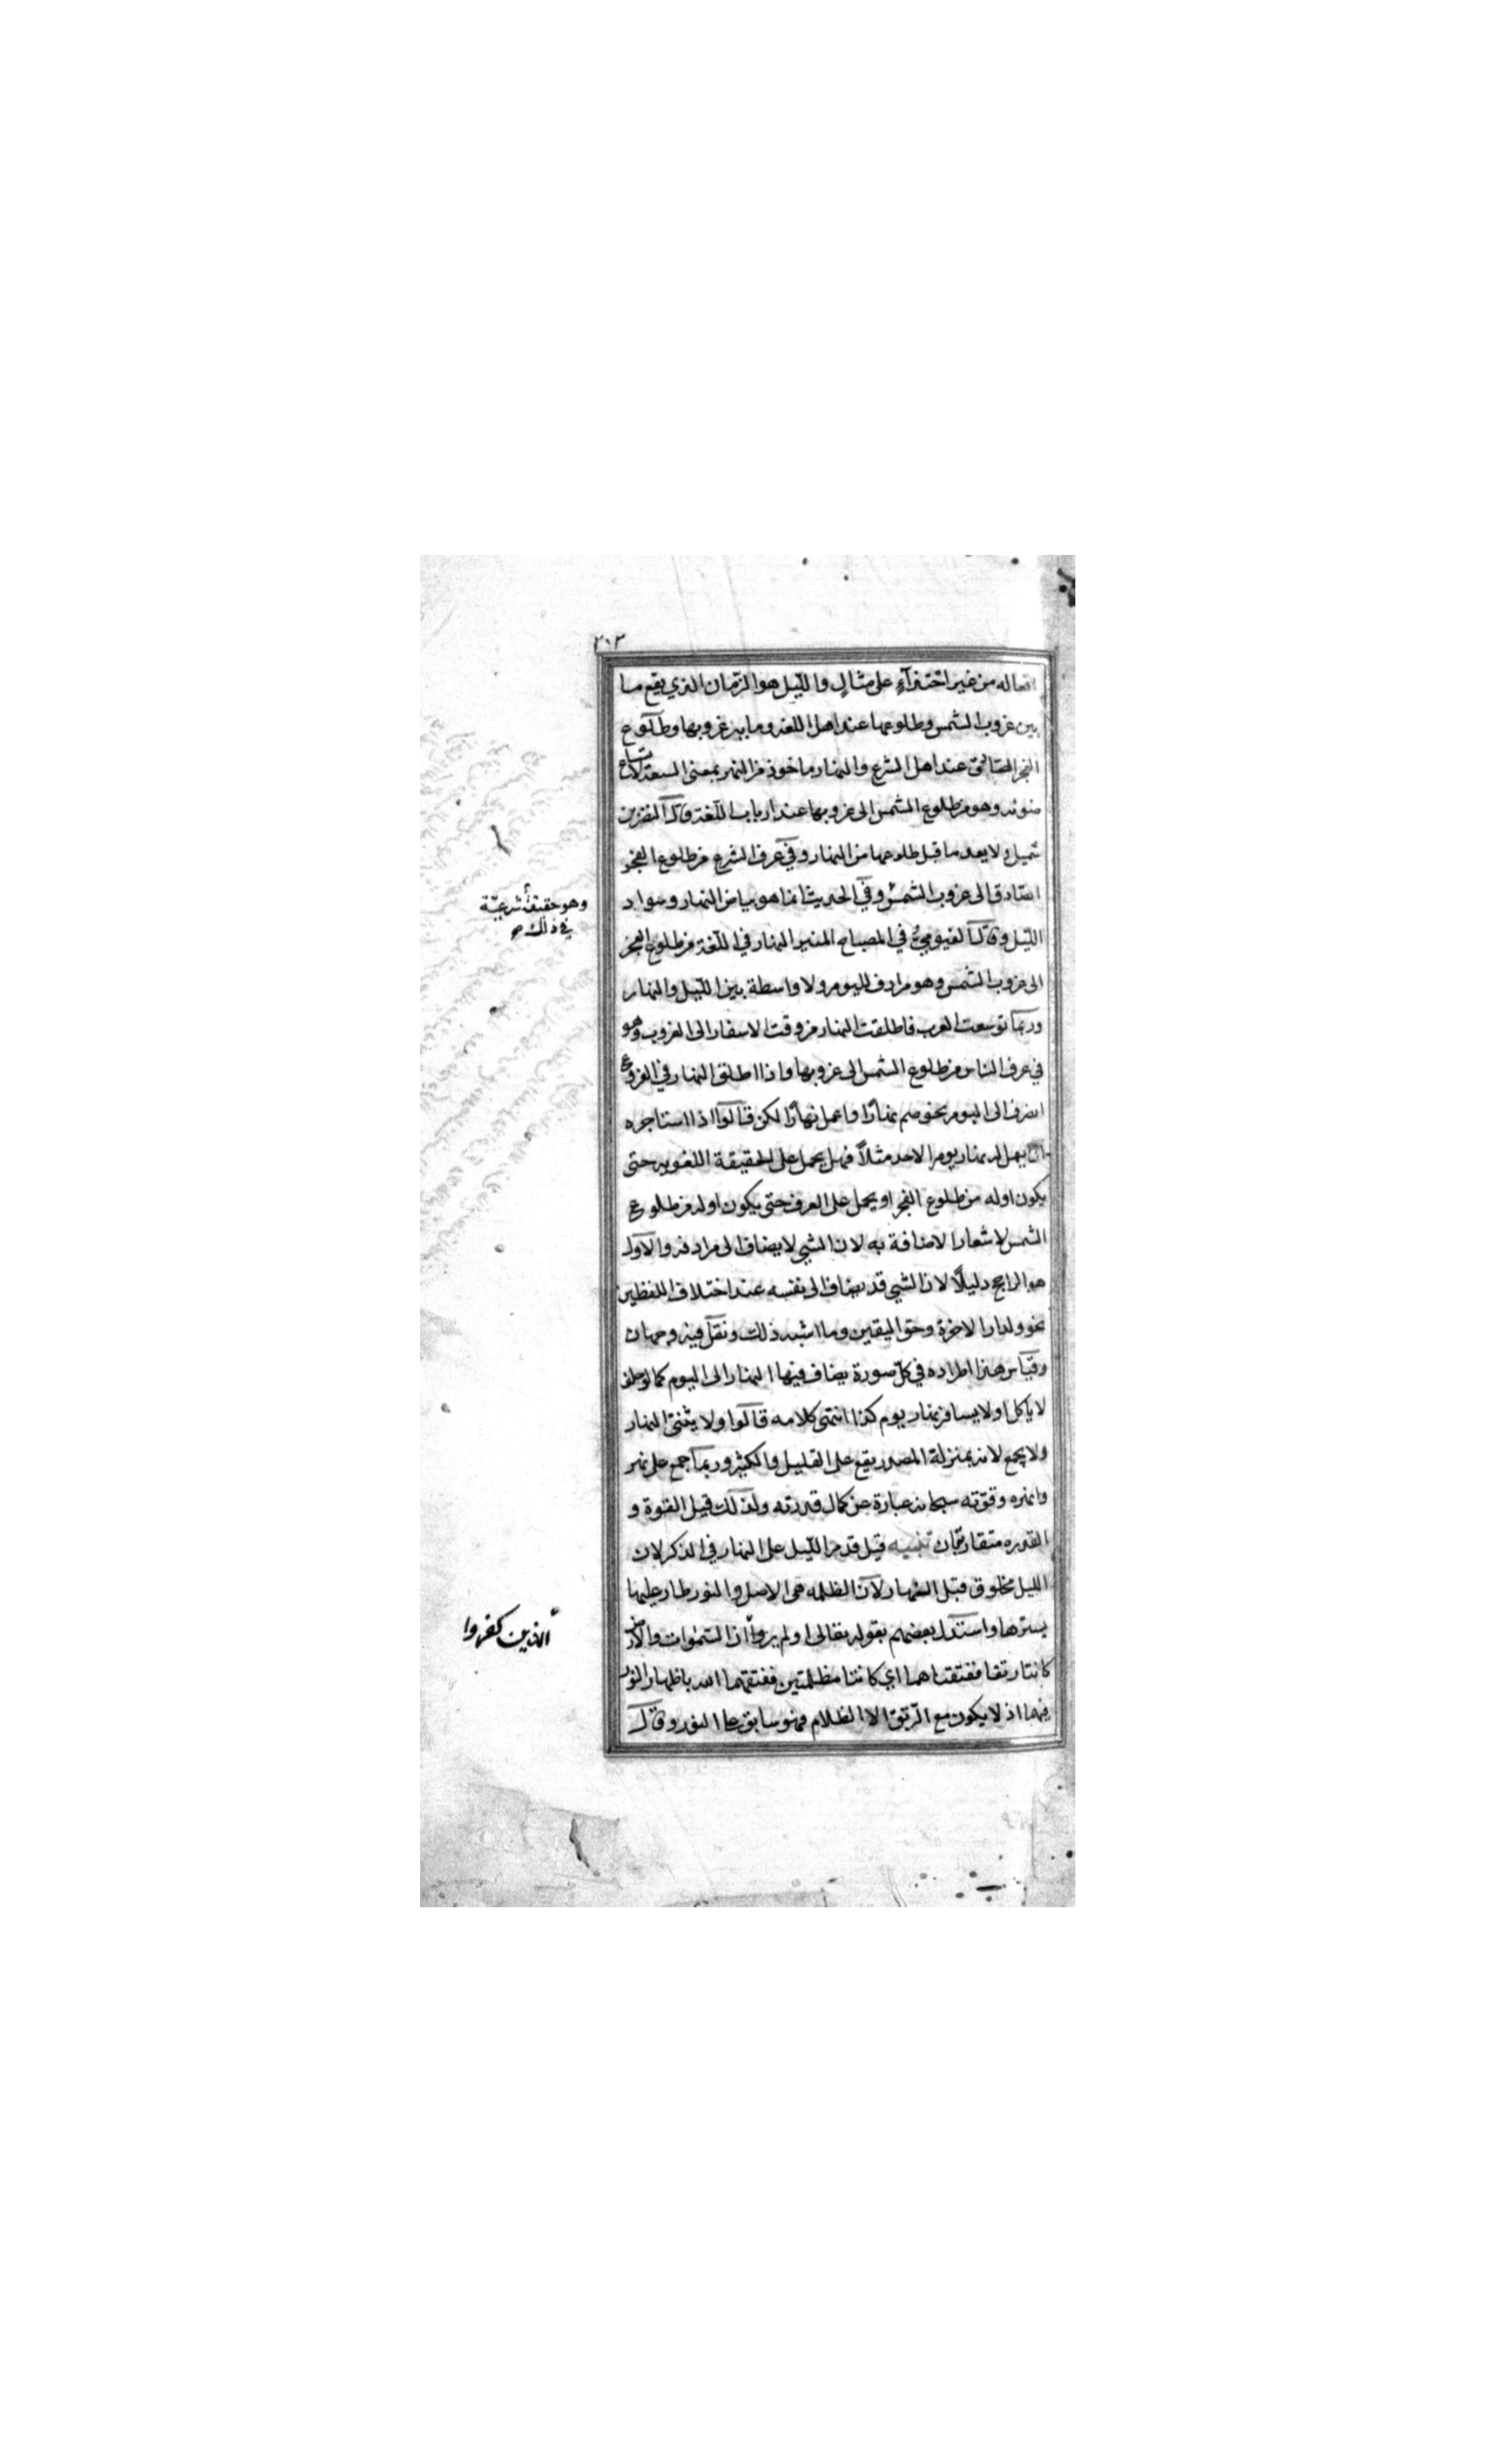 ٢٠٣
افعاله من غير احتذآءٍ على مثالٍ والليل هو الزمان الذي يقع ما
بين غروب الشمس وطلوعها عند اهل اللغه وما بين غروبها وطلوع
الفجر الصادق عند اهل الشرع والنهار ماخوذ من النهر بمعنى السعه لاتساع
ضوئه وهو من طلوع الشمس الى غروبها عند ارباب اللغة قال النضر بن
شميل ولا يعد ما قبل طلوعها من النهار وفي عرف الشرع من طلوع الفجر
الصادق الى غروب الشمس وفي الحديث انما هو بياض النهار وسواد
الليل وقال الفيومي في المصباح المنير النهار في اللغة من طلوع الفجر
الى غروب الشمس وهو مرادف لليوم ولا واسطة بين الليل والنهار
وربما توسعت العرب فاطلقت النهار من وقت الاسفار الى الغروب وهو
في عرف الناس من طلوع الشمس الى غروبها واذا اطلق النهار في الفروع
انصرف الى اليوم نحو صم نهارًا واعمل نهارًا لكن قالوا اذا استاجره
ان يعمل له نهار يوم الاحد مثلاً فهل يحمل على الحقيقة اللغويه حتى
يكون اوله من طلوع الفجر او يحمل على العرف حتى يكون اوله من طلوع
الشمس لاشعار الاضافة به لان الشي لا يضاف الى مرادفه والاول
هو الراجح دليلاً لان الشي قد يضاف الى نفسه عند اختلاف اللفظين
نحو ولدار الاخرة وحق اليقين وما اشبه ذلك ونقل فيه وجهان
وقياس هذا اطراده في كل صورة يضاف فيها النهار الى اليوم كما لو حلف
لا ياكل او لا يسافر نهار يوم كذا انتهى كلامه قالوا ولا يثنى النهار
ولا يجمع لانه بمنزلة المصدر يقع على القليل والكثير وربما جمع على نهر
وانهره وقوّته سبحانه عبارة عن كمال قدرته ولذلك قيل القوة و
القدره متقاربتان تنبيه قيل قدم الليل على النهار في الذكر لان
الليل مخلوق قبل النهار لان الظلمه هي الاصل والنور طار عليها
يسترها واستدل بعضهم بقوله تعالى اولم ير وا ان السموات والارض
كانتا رتقا ففتقناهما اي كانتا مظلمتين ففتقهما الله باظهار النور
فيهما اذ لا يكون مع الرتق الا الظلام فهو سابق على النور وقال
وهو حقيقة شرعيّة
في ذلك ص
الذين كفروا